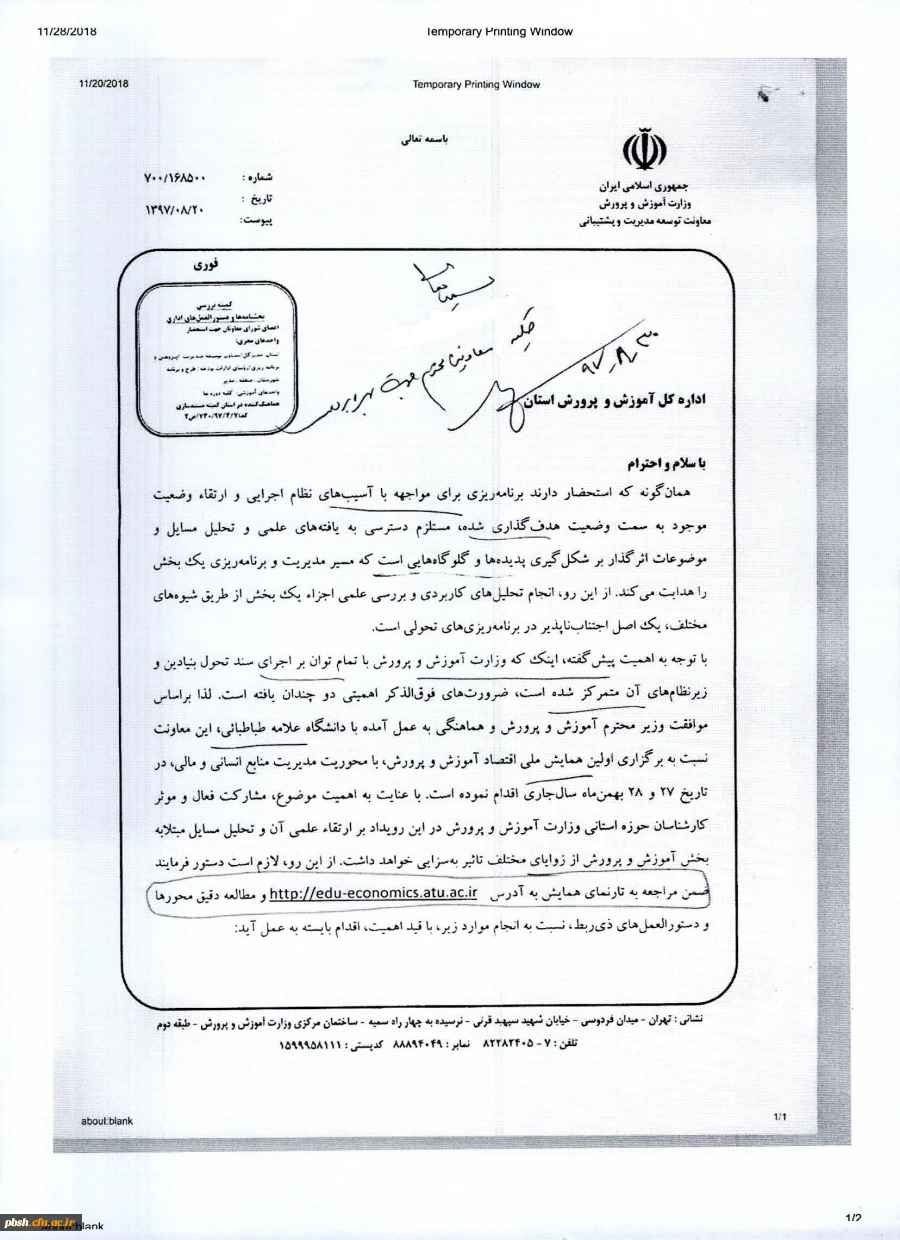 11/28/2018
Temporary Printing Window
11/20/2018
Temporary Printing Window
باسمه تعالی
جمهوری اسلامی ایران
وزارت آموزش و پرورش
معاونت توسعه مدیریت و پشتیبانی
شماره : ۷۰۰/۱۶۸۵۰۰
تاریخ : ۱۳۹۷/۰۸/۲۰
پیوست:
فوری
کمیته بررسی
بخشنامه‌ها و دستورالعمل‌های اداری
اعضای شورای معاونان جهت استحضار
واحدهای مجری:
هماهنگ‌کننده در استان کمیته مستندسازی
۹۷-۸-۳۰
اداره کل آموزش و پرورش استان
با سلام و احترام
همان‌گونه که استحضار دارند برنامه‌ریزی برای مواجهه با آسیب‌های نظام اجرایی و ارتقاء وضعیت
موجود به سمت وضعیت هدف‌گذاری شده، مستلزم دسترسی به یافته‌های علمی و تحلیل مسایل و
موضوعات اثرگذار بر شکل‌گیری پدیده‌ها و گلوگاه‌هایی است که مسیر مدیریت و برنامه‌ریزی یک بخش
را هدایت می‌کند. از این رو، انجام تحلیل‌های کاربردی و بررسی علمی اجزاء یک بخش از طریق شیوه‌های
مختلف، یک اصل اجتناب‌ناپذیر در برنامه‌ریزی‌های تحولی است.
با توجه به اهمیت پیش‌گفته، اینک که وزارت آموزش و پرورش با تمام توان بر اجرای سند تحول بنیادین و
زیرنظام‌های آن متمرکز شده است، ضرورت‌های فوق‌الذکر اهمیتی دو چندان یافته است. لذا براساس
موافقت وزیر محترم آموزش و پرورش و هماهنگی به عمل آمده با دانشگاه علامه طباطبائی، این معاونت
نسبت به برگزاری اولین همایش ملی اقتصاد آموزش و پرورش، با محوریت مدیریت منابع انسانی و مالی، در
تاریخ ۲۷ و ۲۸ بهمن‌ماه سال‌جاری اقدام نموده است. با عنایت به اهمیت موضوع، مشارکت فعال و موثر
کارشناسان حوزه استانی وزارت آموزش و پرورش در این رویداد بر ارتقاء علمی آن و تحلیل مسایل مبتلابه
بخش آموزش و پرورش از زوایای مختلف تاثیر به‌سزایی خواهد داشت. از این رو، لازم است دستور فرمایند
ضمن مراجعه به تارنمای همایش به آدرس http://edu-economics.atu.ac.ir و مطالعه دقیق محورها
و دستورالعمل‌های ذی‌ربط، نسبت به انجام موارد زیر، با قید اهمیت، اقدام بایسته به عمل آید:
نشانی : تهران - میدان فردوسی - خیابان شهید سپهبد قرنی - نرسیده به چهار راه سمیه - ساختمان مرکزی وزارت آموزش و پرورش - طبقه دوم
تلفن : ۷ - ۸۲۲۸۲۴۰۵ نمابر : ۸۸۸۹۴۰۴۹ کدپستی : ۱۵۹۹۹۵۸۱۱۱
about:blank
1/1
pbsh.cfu.ac.ir
1/2